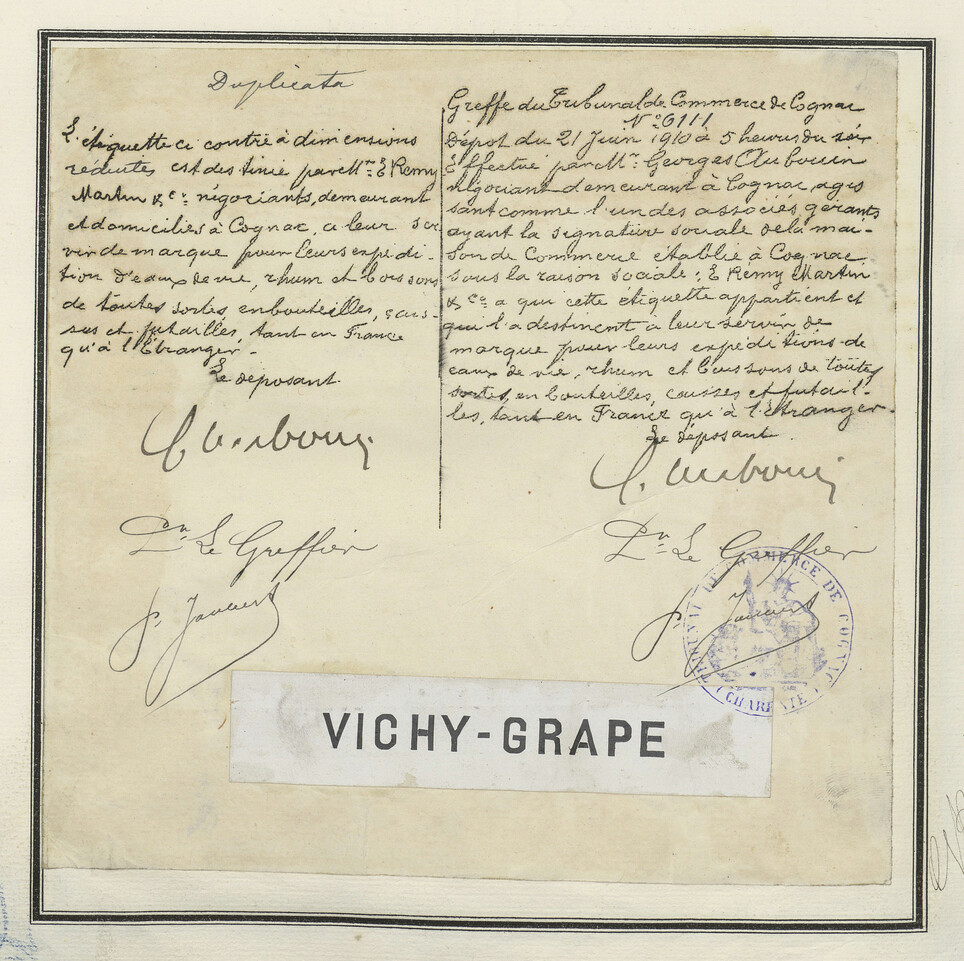 Duplicata
L'étiquette ci contre à dimensions
réduites est destinée par Mrs E Remy
Martin & Cie négociants, demeurant
et domiciliés à Cognac, a leur ser
vir de marque pour leurs expédi-
tion d'eaux de vie, rhum et boissons
de toutes sortes, en bouteilles, cais-
ses et futailles, tant en France
qu'à l'Étranger.-
Le déposant
G. Aubouin
Dn Le Greffier
Greffe du Tribunal de Commerce de Cognac
No 6111
Dépot du 21 Juin 1910 à 5 heures du soir
Effectué par Mr Georges Aubouin
négociant demeurant à Cognac, agis
sant comme l'un des associés gérants
ayant la signature sociale de la mai-
son de Commerce établie à Cognac
sous la raison sociale: E Remy Martin
& Co a qui cette étiquette appartient et
qui l'a destinent à leur servir de
marque pour leurs expéditions de
eaux de vie, rhum et boissons de toutes
sortes, en bouteilles, caisses et futail-
les, tant en France qu'à l'Étranger.
Le déposant
G. Aubouin
Dn Le Greffier
TRIBUNAL DE COMMERCE DE COGNAC
(CHARENTE)
VICHY-GRAPE